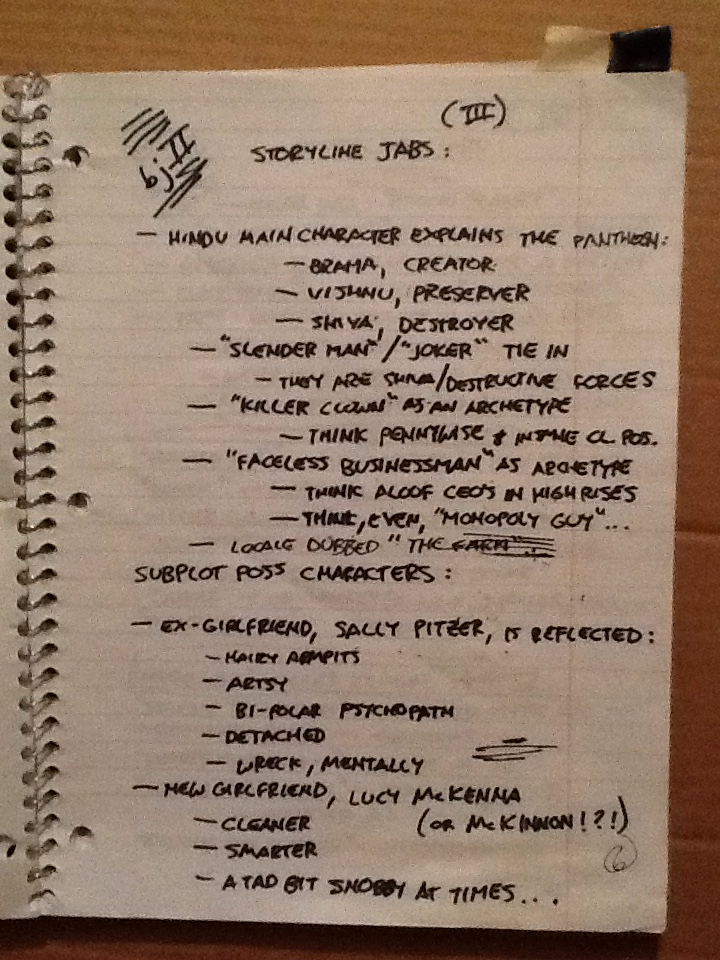 (III)
STORYLINE JABS:
— HINDU MAIN CHARACTER EXPLAINS THE PANTHEON:
— BRAMA, CREATOR
— VISHNU, PRESERVER
— SHIVA, DESTROYER
— "SLENDER MAN"/"JOKER" TIE IN
— THEY ARE SHIVA/DESTRUCTIVE FORCES
— "KILLER CLOWN" AS AN ARCHETYPE
— THINK PENNYWISE & CL. POS.
— "FACELESS BUSINESSMAN" AS ARCHETYPE
— THINK ALOOF CEO'S IN HIGH RISES
— THINK, EVEN, "MONOPOLY GUY"...
— LOCALE DUBBED "THE FARM"...
SUBPLOT POSS CHARACTERS:
— EX-GIRLFRIEND, SALLY PITZER, IS REFLECTED:
— HAIRY ARMPITS
— ARTSY
— BI-POLAR PSYCHOPATH
— DETACHED
— WRECK, MENTALLY
— NEW GIRLFRIEND, LUCY McKENNA
— CLEANER (OR McKINNON!?!)
— SMARTER
— A TAD BIT SNOBBY AT TIMES...
6